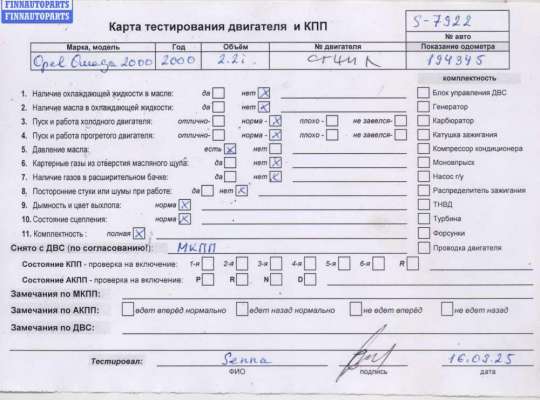 FINNAUTOPARTS
FINNAUTOPARTS
Карта тестирования двигателя и КПП
S-7922
№ авто
Марка, модель Год Объём № двигателя Показание одометра
Opel Omega 2000 2000 2.2i 194345
комплектность
1. Наличие охлаждающей жидкости в масле: да нет X
2. Наличие масла в охлаждающей жидкости: да нет X
3. Пуск и работа холодного двигателя: отлично- норма - X плохо - не завелся-
4. Пуск и работа прогретого двигателя: отлично- норма - X плохо - не завелся-
5. Давление масла: есть X нет
6. Картерные газы из отверстия масляного щупа: да нет X
7. Наличие газов в расширительном бачке: да нет X
8. Посторонние стуки или шумы при работе: да нет X
9. Дымность и цвет выхлопа: норма X
10. Состояние сцепления: норма X
11. Комплектность : полная X
Блок управления ДВС
Генератор
Карбюратор
Катушка зажигания
Компрессор кондиционера
Моновпрыск
Насос г/у
Распределитель зажигания
ТНВД
Турбина
Форсунки
Проводка двигателя
Снято с ДВС (по согласованию!): МКПП
Состояние КПП - проверка на включение: 1-я 2-я 3-я 4-я 5-я 6-я R
Состояние АКПП - проверка на включение: P R N D
Замечания по МКПП:
Замечания по АКПП: едет вперед нормально едет назад нормально не едет вперёд не едет назад
Замечания по ДВС:
Тестировал: Senna 16.03.25
ФИО подпись дата